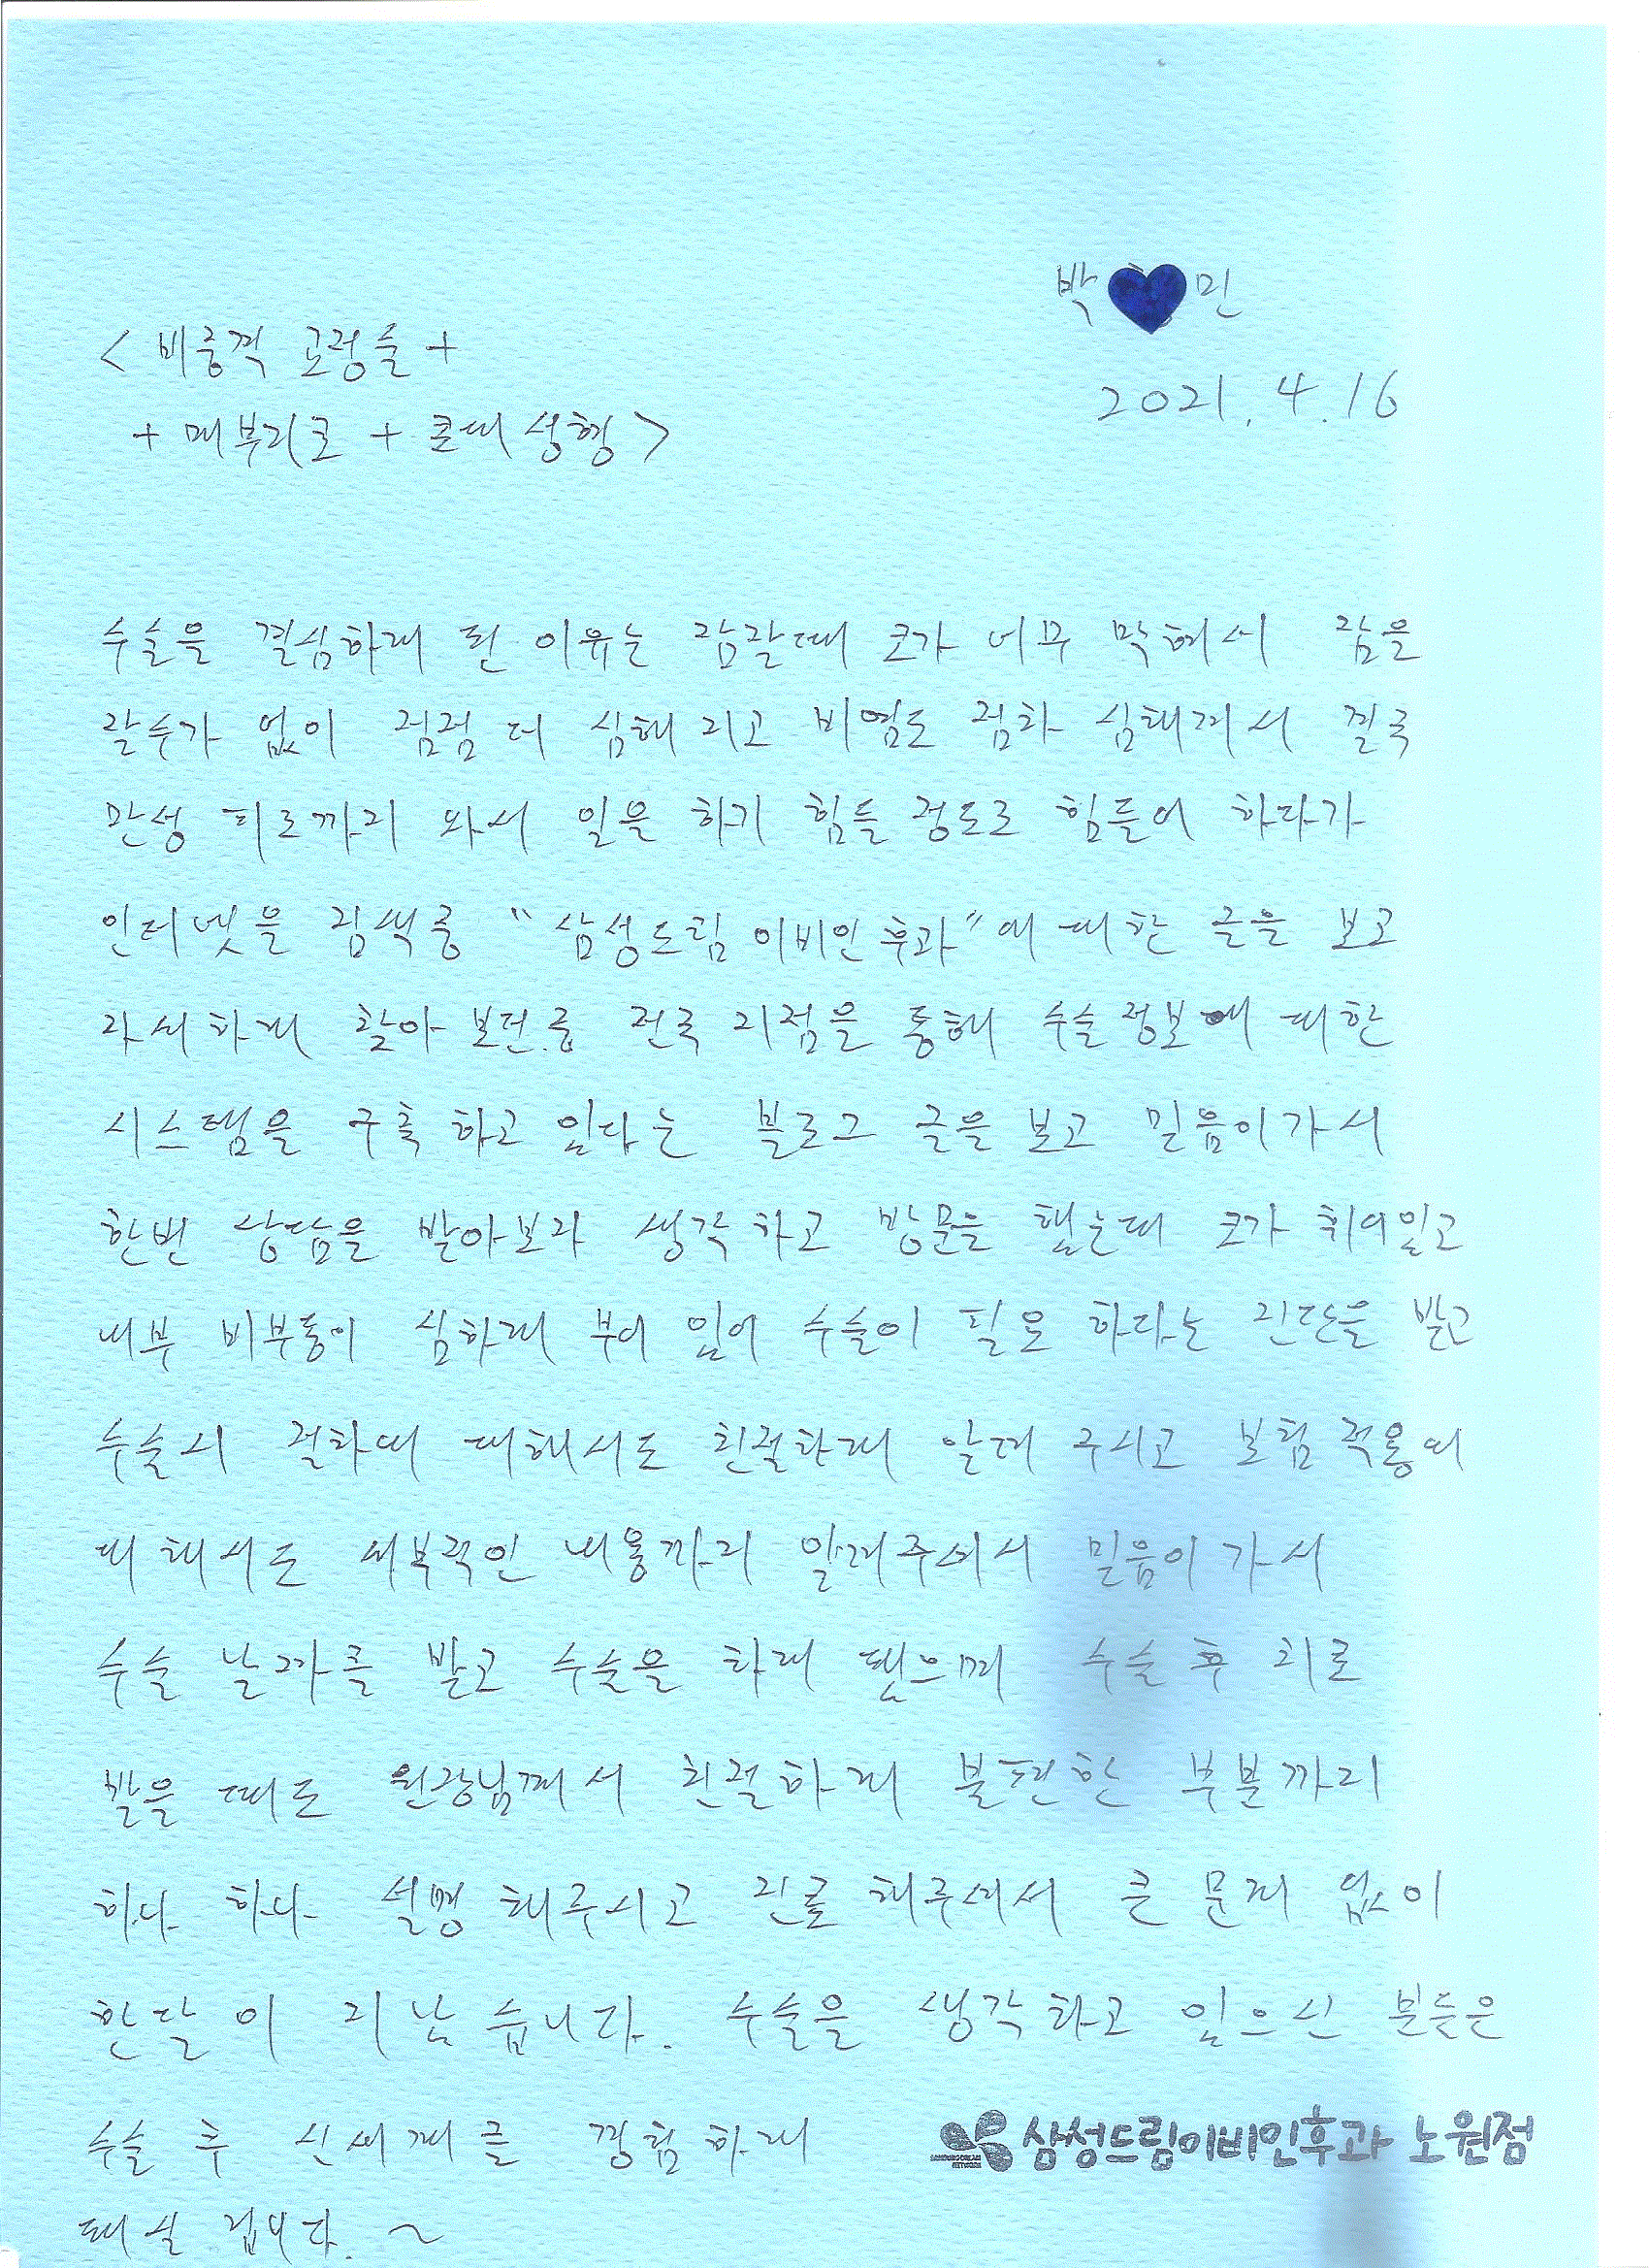 박 민
2021. 4. 16
< 비중격 교정술 +
+ 매부리코 + 콧대 성형 >
수술을 결심하게 된 이유는 잠잘때 코가 너무 막혀서 잠을
잘수가 없이 점점 더 심해 지고 비염도 점차 심해져서 결국
만성 피로까지 와서 일을 하기 힘들 정도로 힘들어 하다가
인터넷을 검색중 "삼성드림 이비인후과"에 대한 글을 보고
자세하게 찾아 보던중 전국 지점을 통해 수술정보에 대한
시스템을 구축 하고 있다는 블로그 글을 보고 믿음이가서
한번 상담을 받아보자 생각 하고 방문을 했는데 코가 휘어있고
내부 비부동이 심하게 부어 있어 수술이 필요 하다는 진단을 받고
수술시 절차에 대해서도 친절하게 알려 주시고 보험 적용에
대해서도 세부적인 내용까지 알려주셔서 믿음이 가서
수술 날짜를 받고 수술을 하게 됐으며 수술 후 치료
받을 때도 원장님께서 친절하게 불편한 부분까지
하나 하나 설명 해주시고 진료 해주셔서 큰 문제 없이
한달 이 지났습니다. 수술을 생각하고 있으신 분들은
수술 후 신세계를 경험하게
되실 겁니다. ~
삼성드림이비인후과 노원점